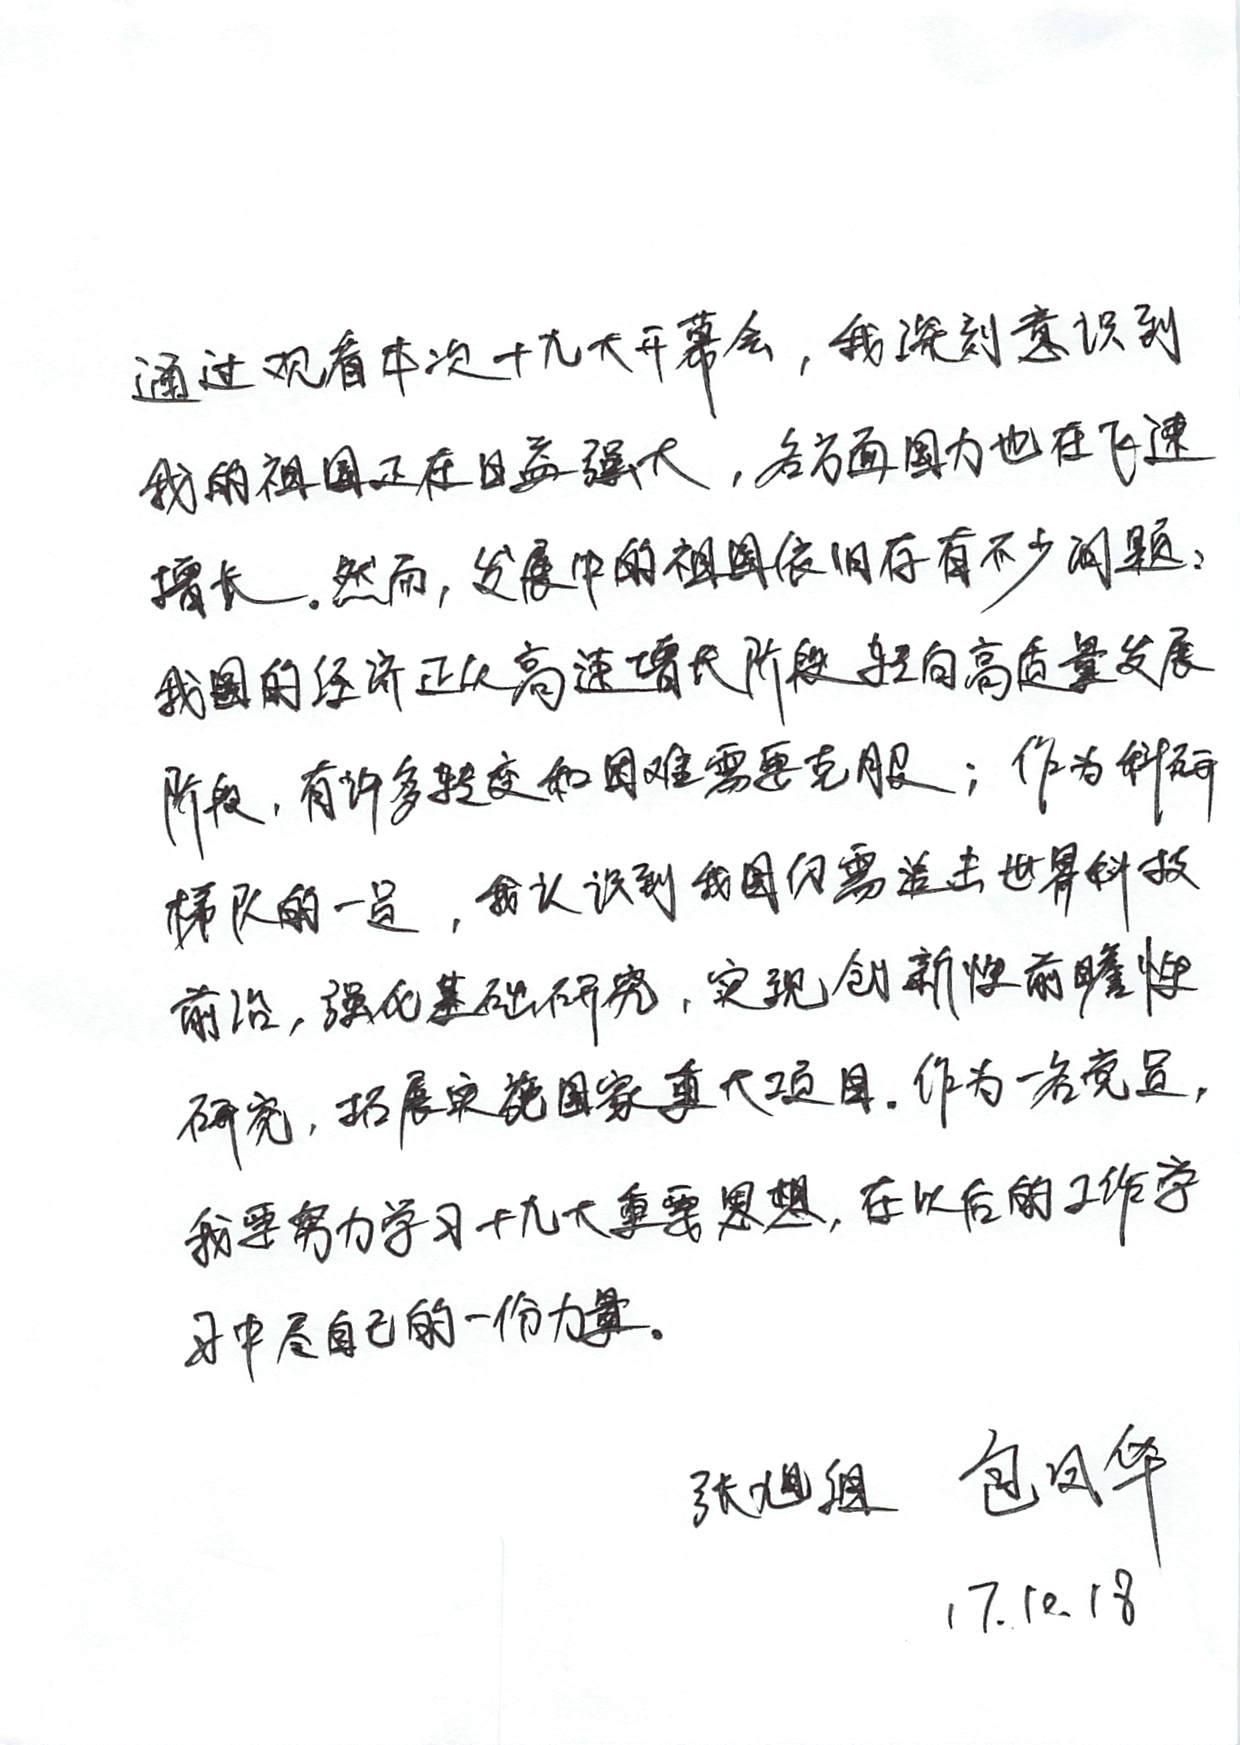 通过观看本次十九大开幕会，我深刻意识到
我的祖国正在日益强大，各方面国力也在飞速
增长。然而，发展中的祖国依旧存有不少问题：
我国的经济正从高速增长阶段转向高质量发展
阶段，有许多转变和困难需要克服；作为科研
梯队的一员，我认识到我国仍需追击世界科技
前沿，强化基础研究，实现创新性前瞻性
研究，拓展实施国家重大项目。作为一名党员，
我要努力学习十九大重要思想，在以后的工作学
习中尽自己的一份力量。
张旭组 包凤华
17.10.18